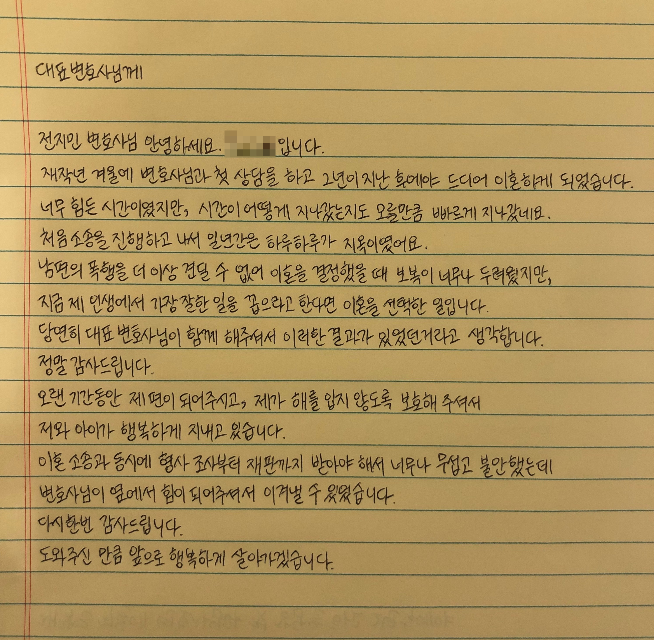 대표변호사님께
전지민 변호사님 안녕하세요. 입니다.
재작년 겨울에 변호사님과 첫 상담을 하고 2년이 지난 후에야 드디어 이혼하게 되었습니다.
너무 힘든 시간이였지만, 시간이 어떻게 지나갔는지도 모를만큼 빠르게 지나갔네요.
처음 소송을 진행하고 나서 일년간은 하루하루가 지옥이였어요.
남편의 폭행을 더 이상 견딜 수 없어 이혼을 결정했을 때 보복이 너무나 두려웠지만,
지금 제 인생에서 가장 잘한 일을 꼽으라고 한다면 이혼을 선택한 일입니다.
당연히 대표 변호사님이 함께 해주셔서 이러한 결과가 있었던거라고 생각합니다.
정말 감사드립니다.
오랜 기간동안 제 편이 되어주시고, 제가 해를 입지 않도록 보호해 주셔서
저와 아이가 행복하게 지내고 있습니다.
이혼 소송과 동시에 형사 조사부터 재판까지 받아야 해서 너무나 무섭고 불안했는데
변호사님이 옆에서 힘이 되어주셔서 이겨낼 수 있었습니다.
다시한번 감사드립니다.
도와주신 만큼 앞으로 행복하게 살아가겠습니다.